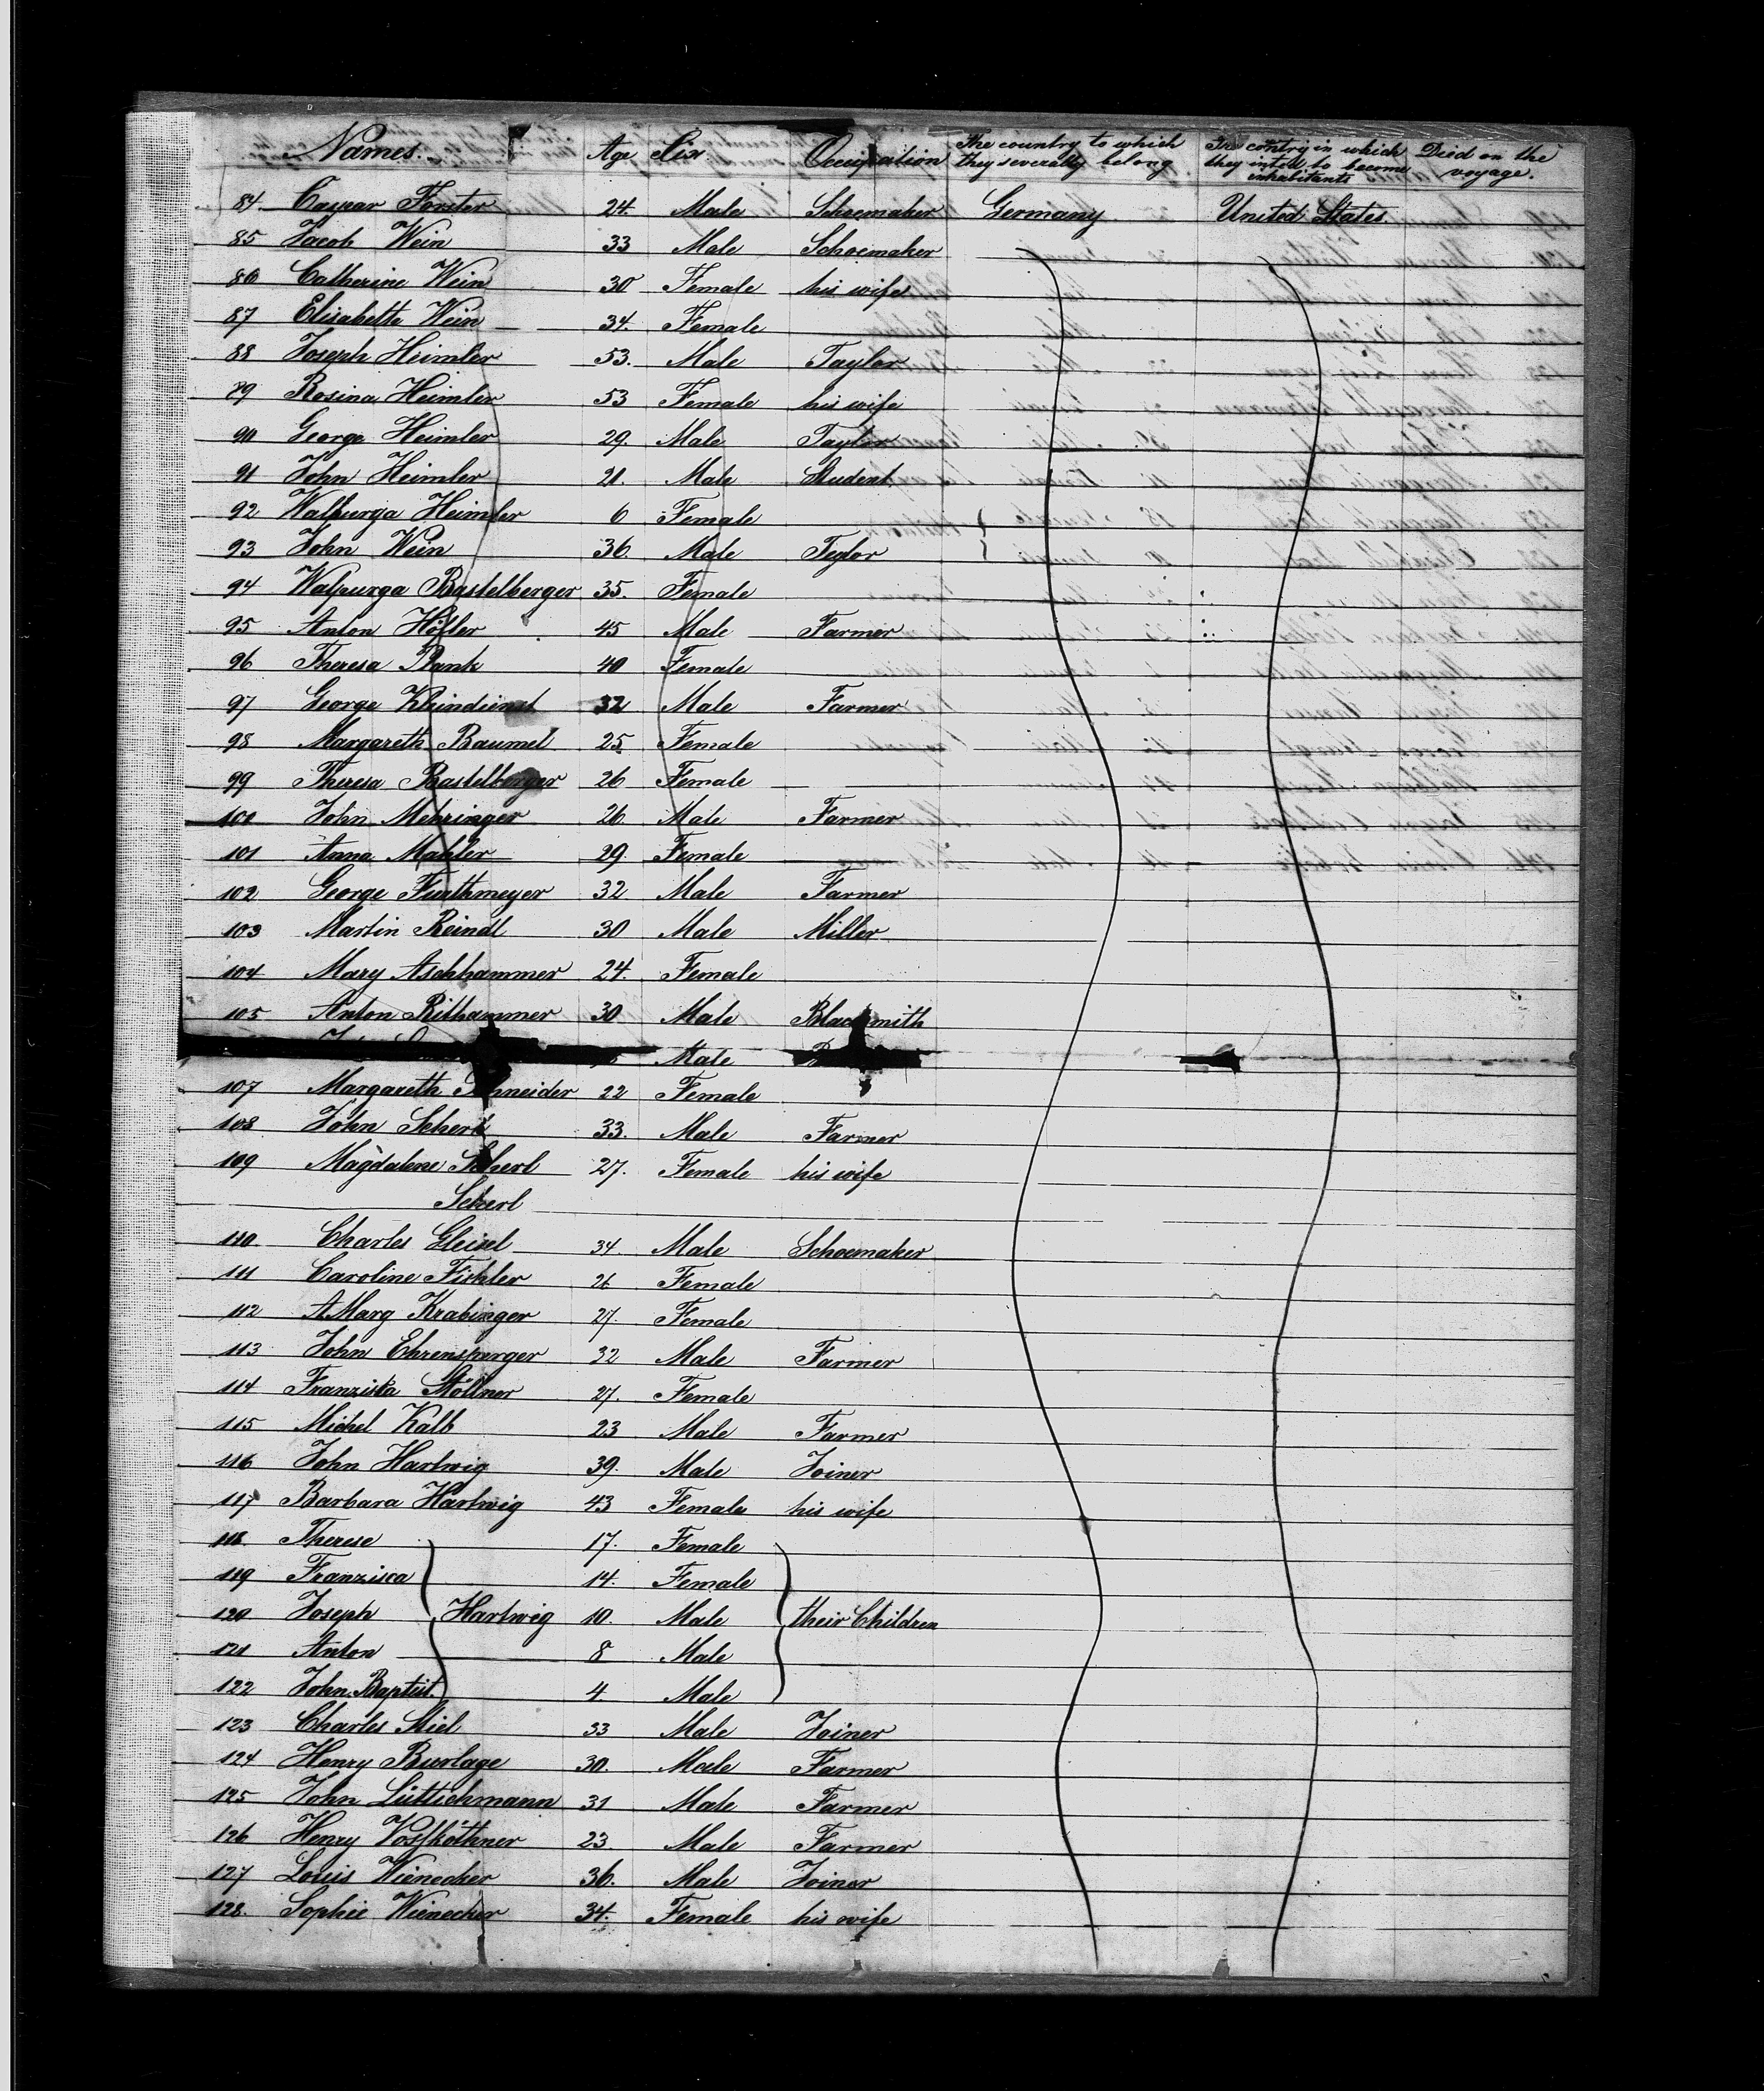 Names. Age Sex Occupation The country to which they severally belong The contry in which they inted to become inhabitants Died on the voyage.
84. Caspar Forster 24. Male Schoemaker Germany United States
85 Jacob Wein 33 Male Schoemaker
86 Catherine Wein 30 Female his wife
87 Elisabetta Wein 34. Female
88 Joseph Heimler 53. Male Taylor
89 Rosina Heimler 53 Female his wife
90 George Heimler 29. Male Taylor
91 John Heimler 21. Male Student
92 Walpurga Heimler 6 Female
93 John Wein 36 Male Teylor
94 Walpurga Bastelberger 35. Female
95 Anton Höfler 45 Male Farmer
96 Theresa Plank 40 Female
97 George Kleindienst 32 Male Farmer
98 Margareth Baumel 25 Female
99 Theresa Bastelberger 26 Female
100 John Mehringer 26 Male Farmer
101 Anna Mahler 29. Female
102 George Furthmeyer 32 Male Farmer
103 Martin Reindl 30 Male Miller
104 Mary Aschhammer 24. Female
105 Anton Rithammer 30 Male Blacksmith
Male
107 Margareth Schneider 22 Female
108 John Scherl 33. Male Farmer
109 Magdalene Scherl 27. Female his wife
Scherl
110 Charles Gleisel 34. Male Schoemaker
111 Caroline Fichler 26 Female
112 AMarg Krabinger 27. Female
113 John Ehrensperger 32 Male Farmer
114 Franziska Stöllner 27. Female
115 Michel Kalb 23 Male Farmer
116 John Hartwig 39. Male Joiner
117 Barbara Hartwig 43 Female his wife
118 Therese 17. Female
119 Franzisca 14. Female
120 Joseph Hartwig 10. Male their Children
121 Anton 8 Male
122 John Baptist 4 Male
123 Charles Stiel 33 Male Joiner
124 Henry Burlage 30. Male Farmer
125 John Lüttichmann 31 Male Farmer
126 Henry Vossköthner 23 Male Farmer
127 Louis Wienecker 36. Male Joiner
128. Sophie Wienecker 34. Female his wife